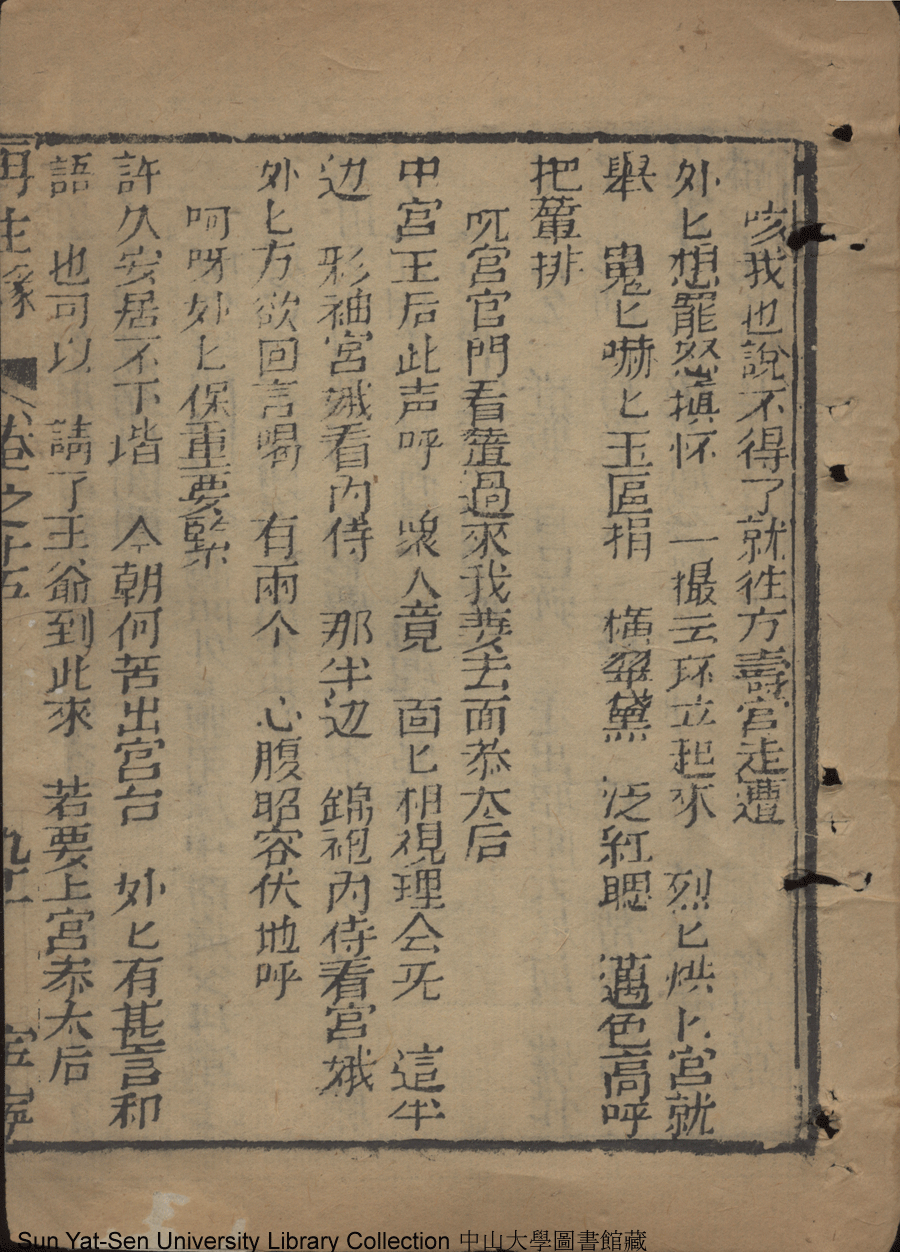 咳我也說不得了就往方壽宮走遭
外匕想罷怒填怀 一撮云环立起來 烈匕烘匕宮就
舉 鬼匕嚇匕玉區捐 橫翠黛 泛紅腮 萬色高呼
把輦排
呒宮官門看輦過來我要去面恭太后
中宮王后此声呼 衆人竟 面匕相視理会死 這半
边 彩袖宮娥看内侍 那半边 錦袍内侍看宮娥
外匕方欲回言喝 有兩个 心腹昭容伏地呼
呵呀外匕保重要緊
許久安居不下堦 今朝何苦出宮台 外匕有甚言和
語 也可以 請了王爺到此來 若要上宮恭太后
再生緣 卷之十五 九十一
Sun Yat-Sen University Library Collection 中山大學圖書館藏